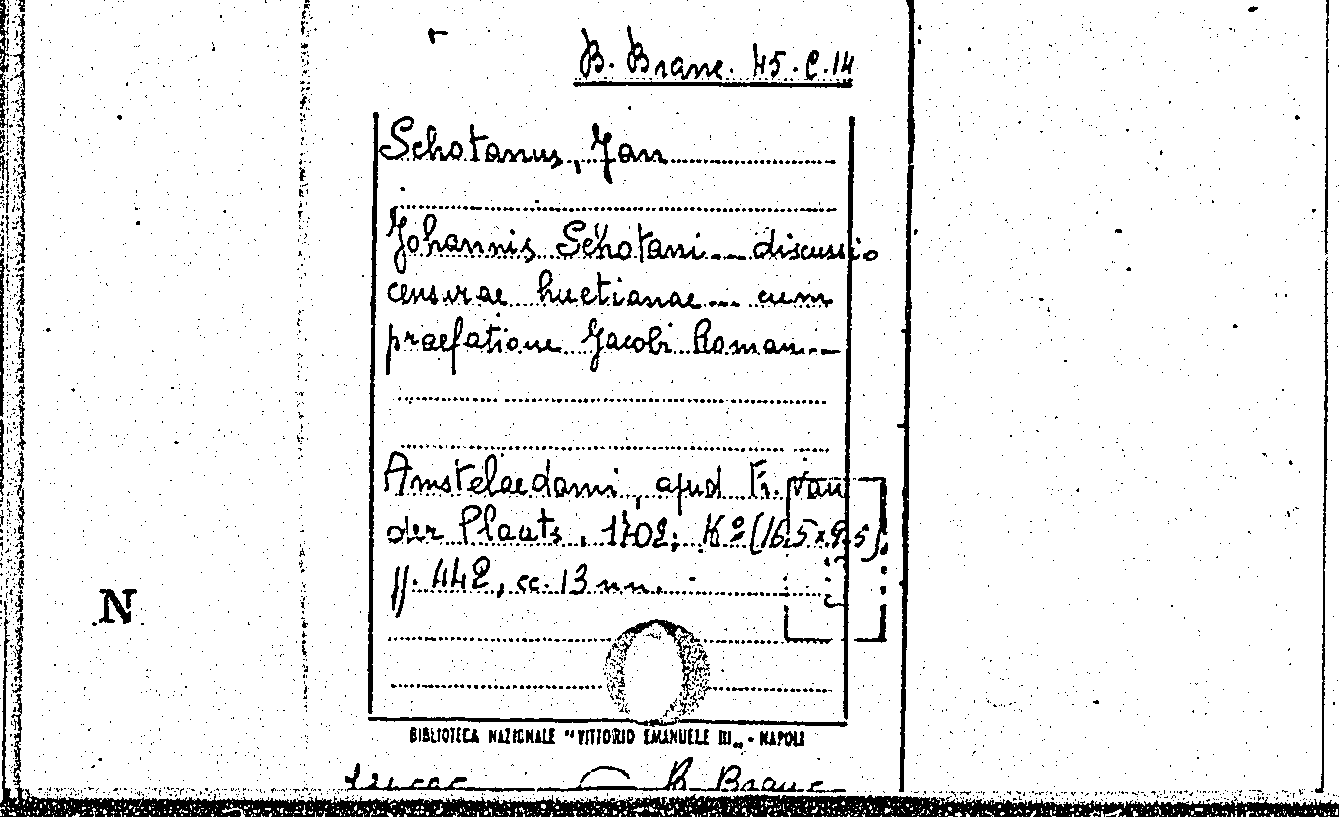 B. Branc. 45. C. 14
Schotanus, Jan
Johannis Schotani... discussio
censurae huetianae... cum
praefatione Jacobi Roman...
Amstelaedami, apud Fr. van
der Plaats, 1702; (16,5x9,5)
pp. 442, cc. 13 nn.
N
BIBLIOTECA NAZIONALE "VITTORIO EMANUELE III„ - NAPOLI
B. Branc